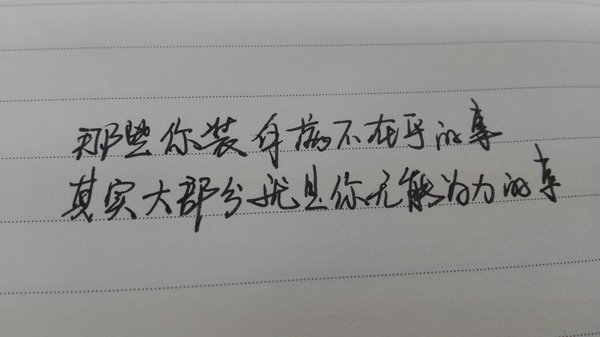 那些你装身痛不在乎的事
其实大部分就是你无能为力的事